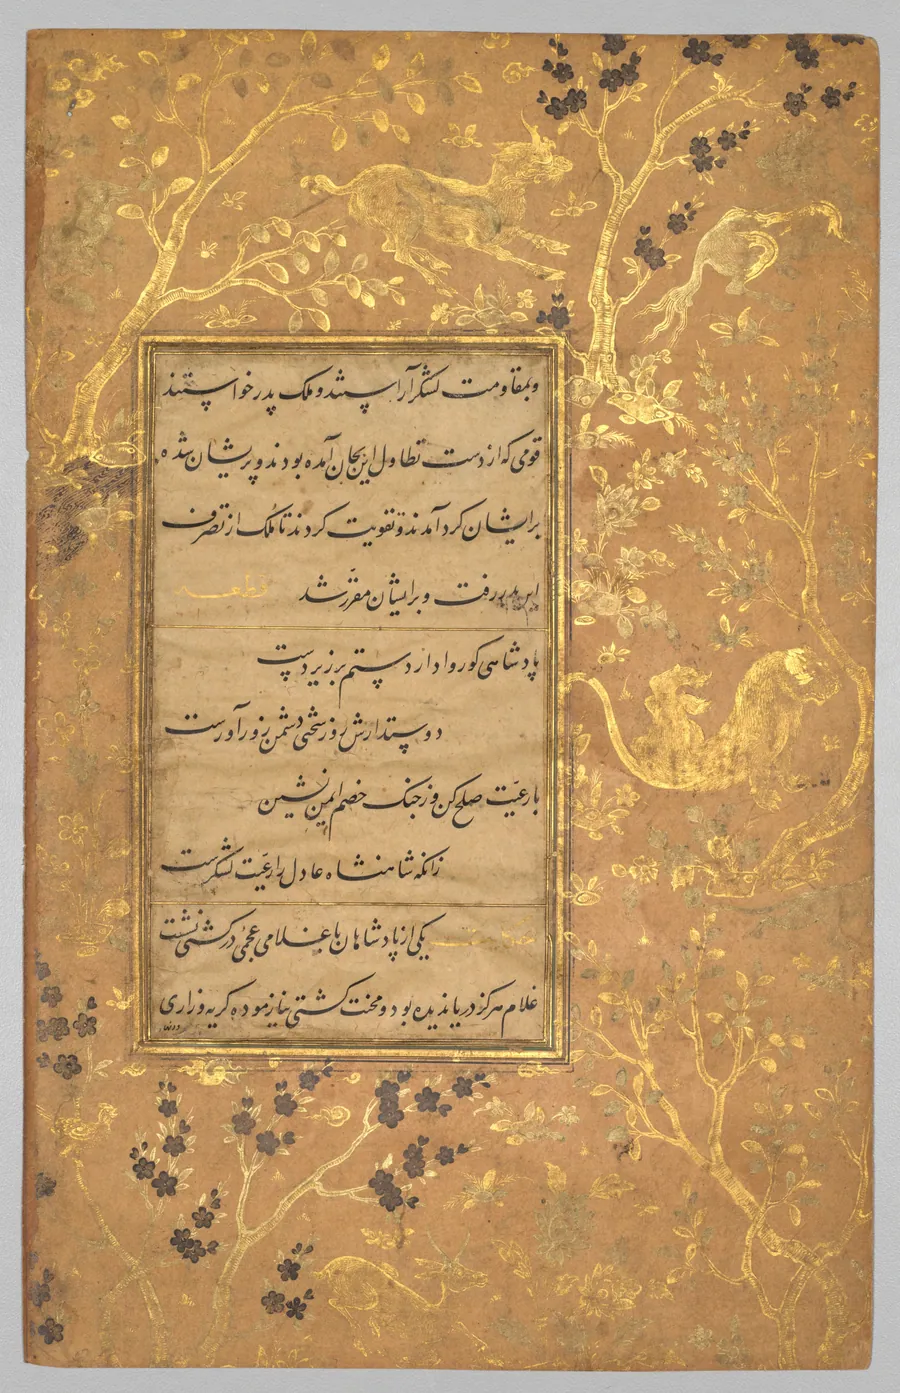 وبمقاومت لشکر آراستند و ملک پدر خواستند
قومی که از دست تطاول این بجان آمده بودند و پریشان شده
بر ایشان کرد آمدند و تقویت کردند تا ملک از تصرف
این بدر رفت و بر ایشان مقرّر شد قطعه
پادشاهی کو روا دارد ستم بر زیردست
دوستدارش روز سختی دشمن زورآورست
با رعیّت صلح کن وز جنک خصم ایمن نشین
زانکه شاهنشاه عادل را رعیّت لشکرست
یکی از پادشاهان با غلامی عجمی در کشتی نشست
غلام هرکز دریا ندیده بود و محنت کشتی نیازموده کریه و زاری